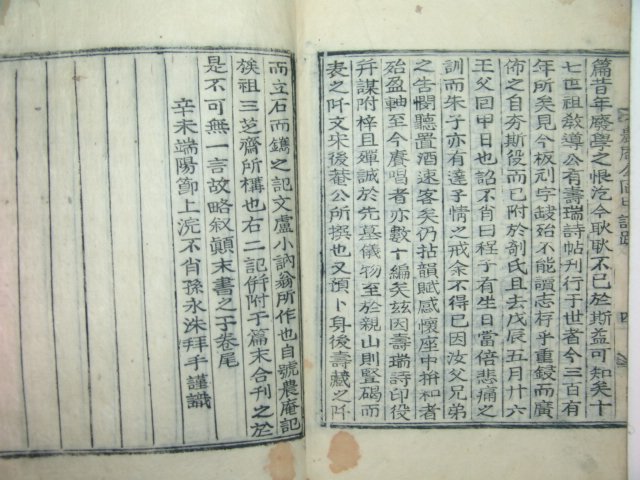 篇昔年廢學之恨汔今耿耿不已於斯益可知矣十
七世祖教導公有壽瑞詩帖刊行于世者今三百有
年所矣見今板刓字缺殆不能讀志存乎重鋟而廣
佈之自夯斯役而已附於剞氏且去戊辰五月廿六
王父回甲日也詔不肖曰程子有生日當倍悲痛之
訓而朱子亦有達子情之戒余不得已因汝父兄弟
之告憫聽置酒速客矣仍拈韻賦感懷座中拚和者
殆盈軸至今賡唱者亦數十編矣玆因壽瑞詩印役
幷謀附梓且殫誠於先墓儀物至於親山則竪碣而
表之阡文宋後菴公所撰也又預卜身後壽藏之阡
而立石而鐫之記文盧小訥翁所作也自號農庵記
族祖三芝齋所構也右二記倂附于篇末合刊之於
是不可無一言故略叙顚末書之于卷尾
辛未端陽節上浣不肖孫永洙拜手謹識